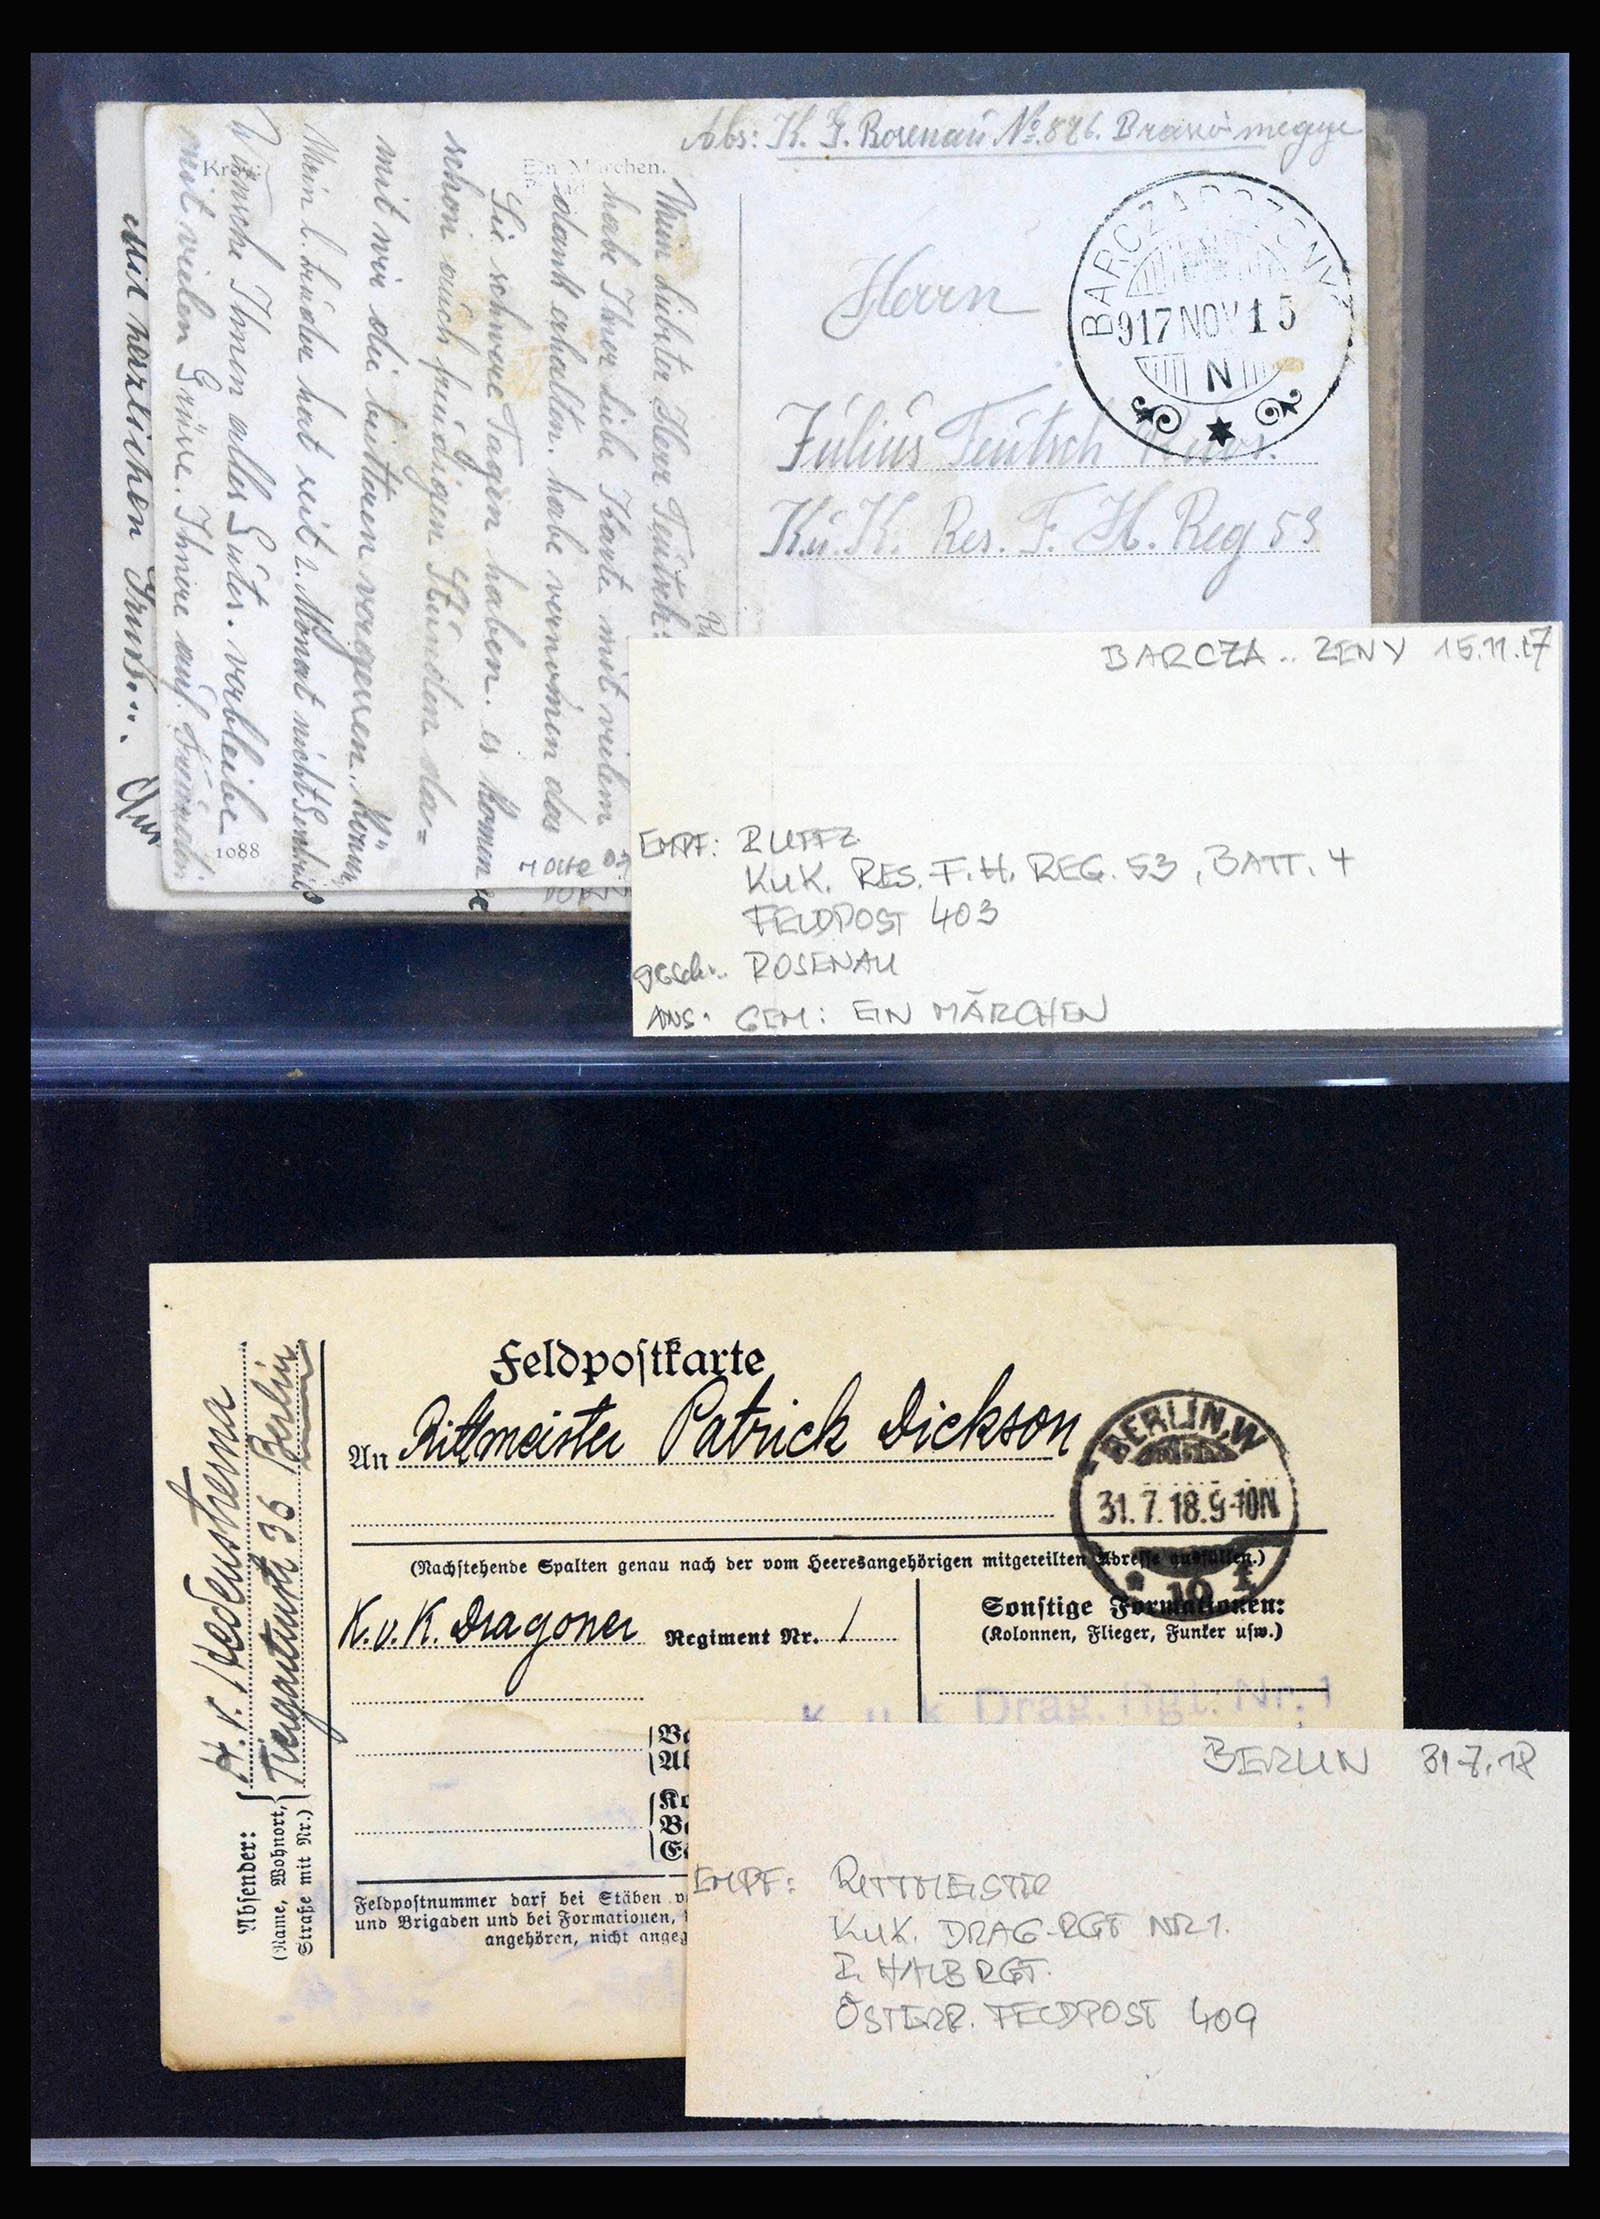 Abs: K. G. Rosenau No. 876. Brassó megye
Kron
Ein Märchen.
BARCZAROZSNYÓ
917 NOV 15
N
Herrn
Július Teútsch
K. ú. K. Res. F. H. Reg 53
Mein liebster Herr Teútsch!
habe Ihner liebe Karte mit vielem
dank erhalten. habe vernomen das
Sie schwere Tagen haben. es komen
schon aúch freúdigen Stúnden da=
mit wir die bitteren vergessen.
Mein l. brúder hat seit 2. Monat nicht
Wünsche Ihnen alles Gútes. verbleibe
mit vielen Grüsse. Ihnere aúf.
1088
Mit herzlichen Gruss...
BARCZA .. ZENY 15.11.17
EMPF: RUFFZ
KUK. RES. F. H. REG. 53, BATT. 4
FELDPOST 403
gesch.. ROSENAU
ANS. GEM: EIN MÄRCHEN
Feldpostkarte
An Rittmeister Patrick Dickson
BERLIN, W
31. 7. 18. 9-10N
(Nachstehende Spalten genau nach der vom Heeresangehörigen mitgeteilten Adresse ausfüllen.)
K. u. K. Dragoner Regiment Nr. 1
Sonstige Formationen:
(Kolonnen, Flieger, Funker usw.)
K. u. k. Drag. Rgt. Nr. 1
Absender:
(Name, Wohnort,
Straße mit Nr.)
H. v. Hedenstierna
Tiergartenstr 36 Berlin
Feldpostnummer darf bei Stäben
und Brigaden und bei Formationen,
angehören, nicht angeg
BERLIN 31.7.18
EMPF: RITTMEISTER
KUK. DRAG-RGT NR 1.
R. HALBRGT.
ÖSTERR. FELDPOST 409